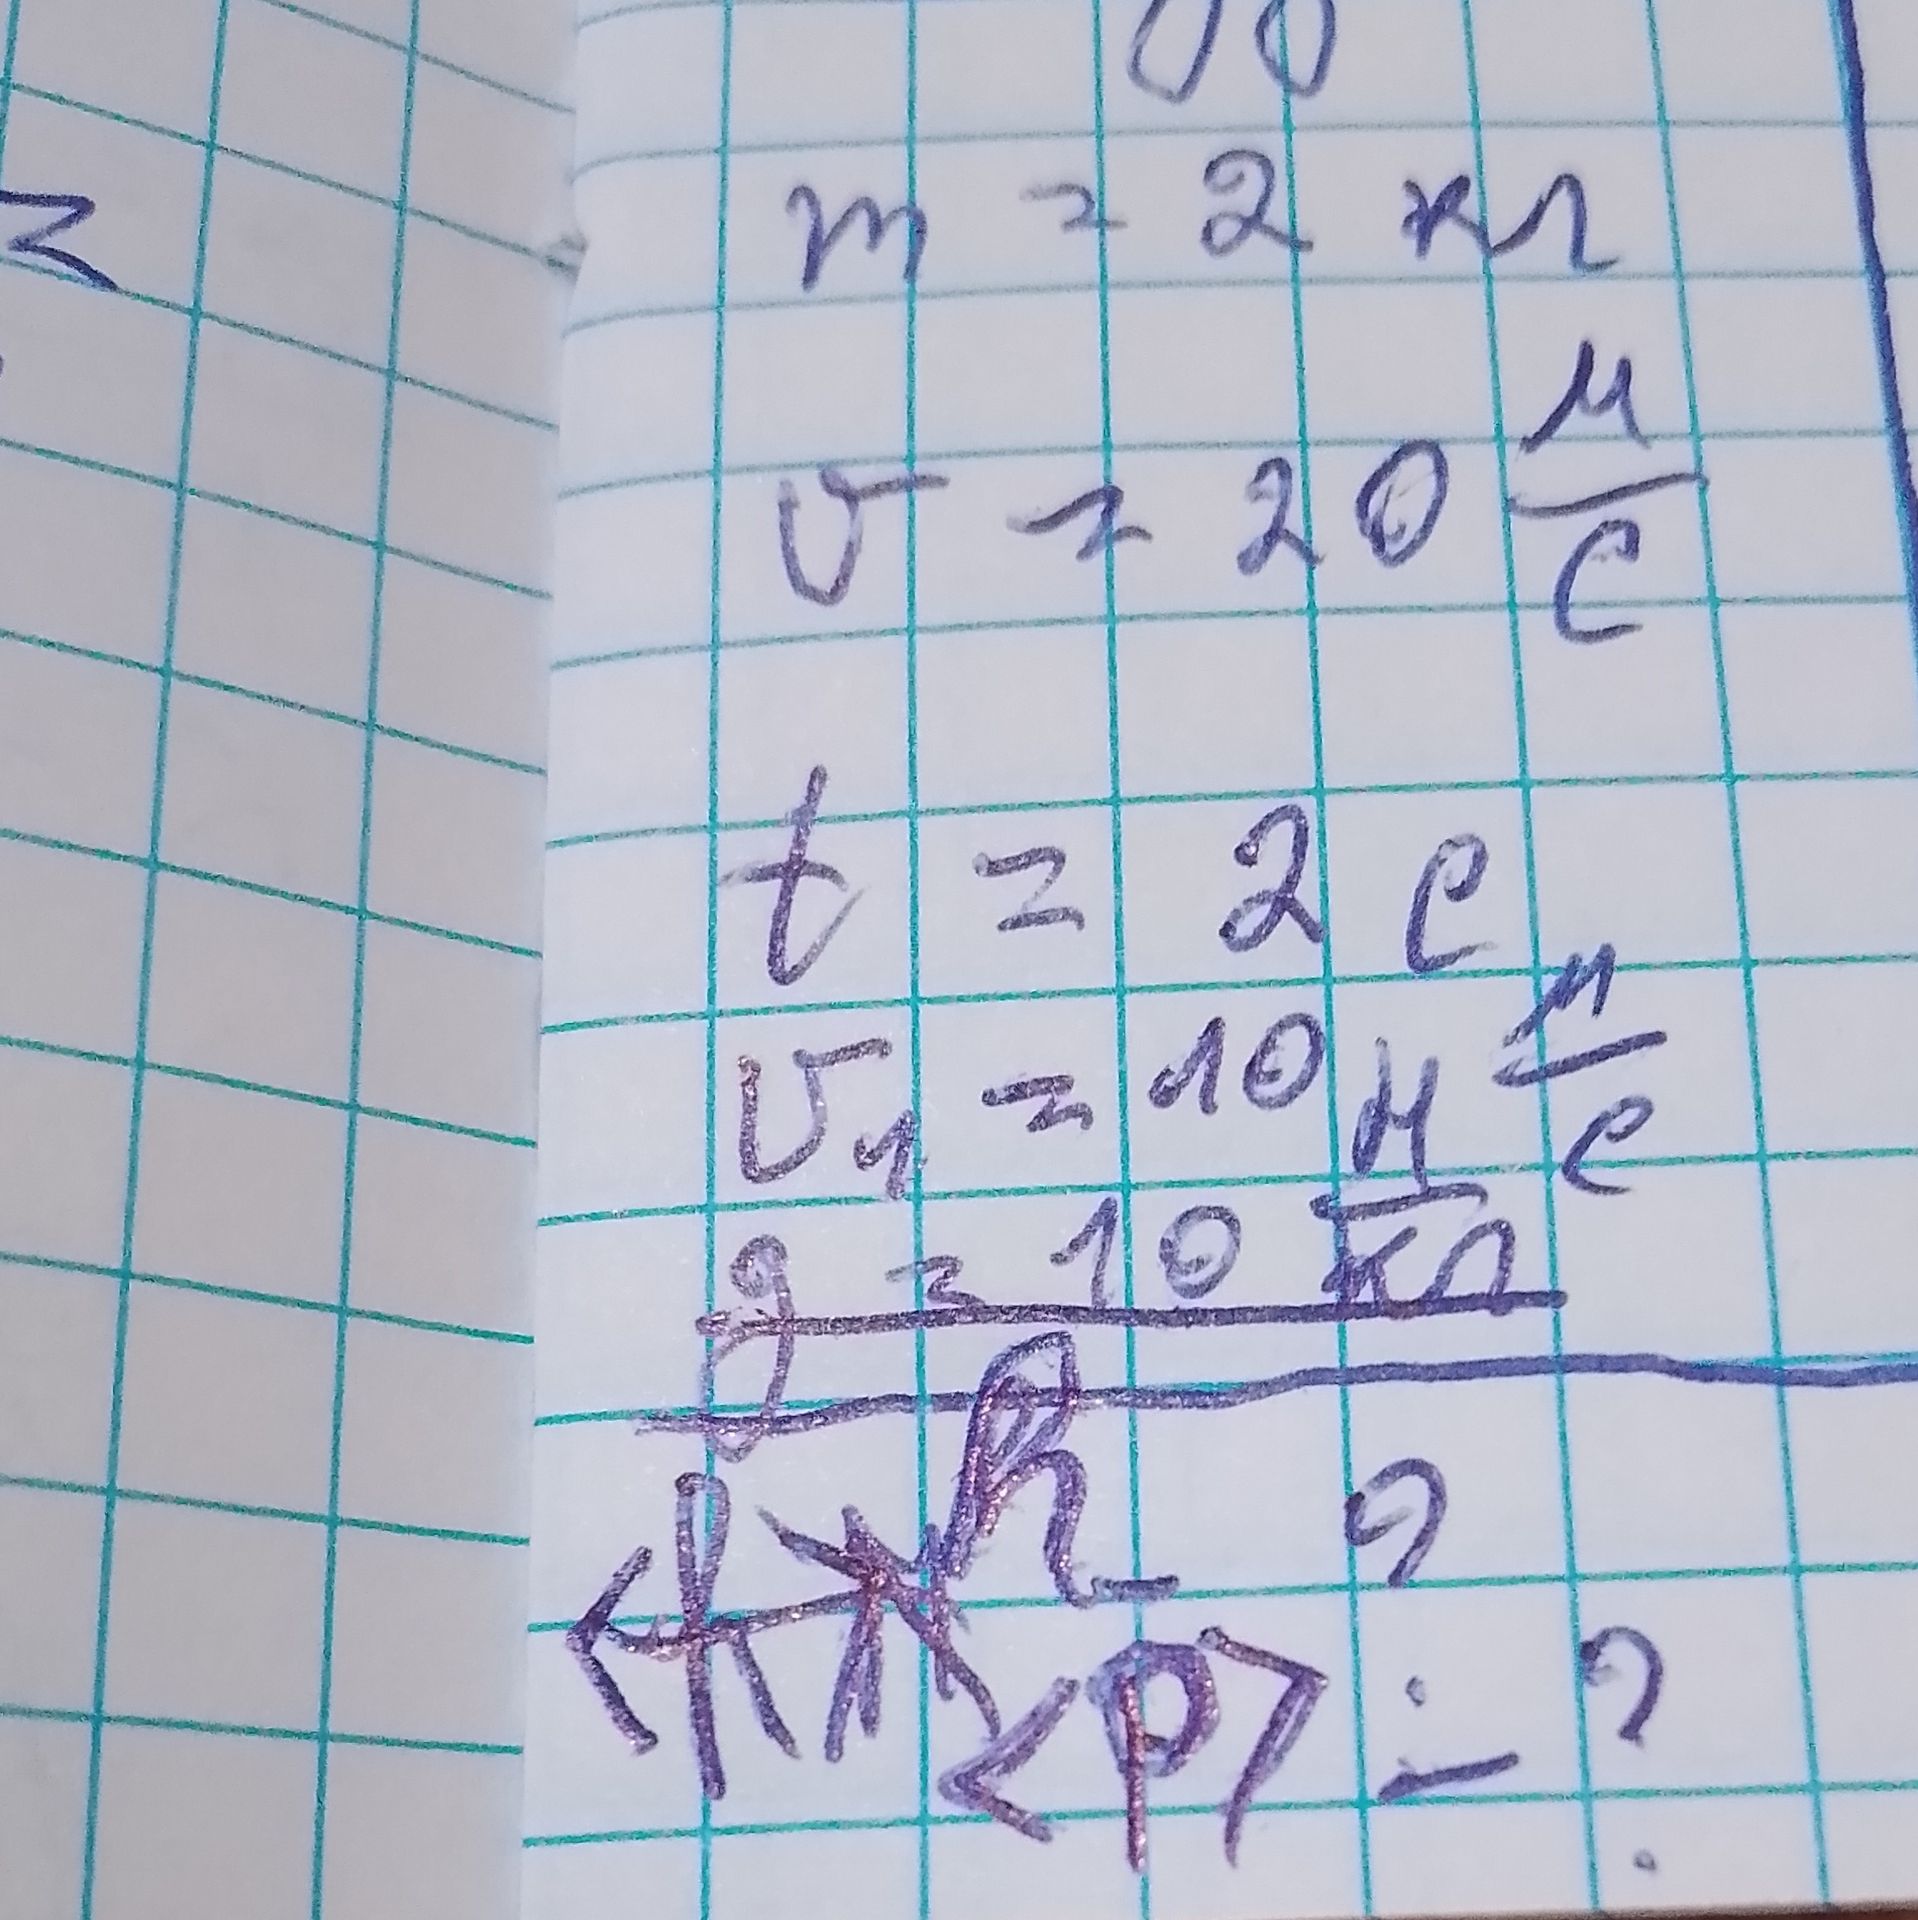 m = 2 кг
v = 20 м/с
t = 2 с
v₁ = 10 м/с
g = 10 Н/кг
h - ?
<p> - ?